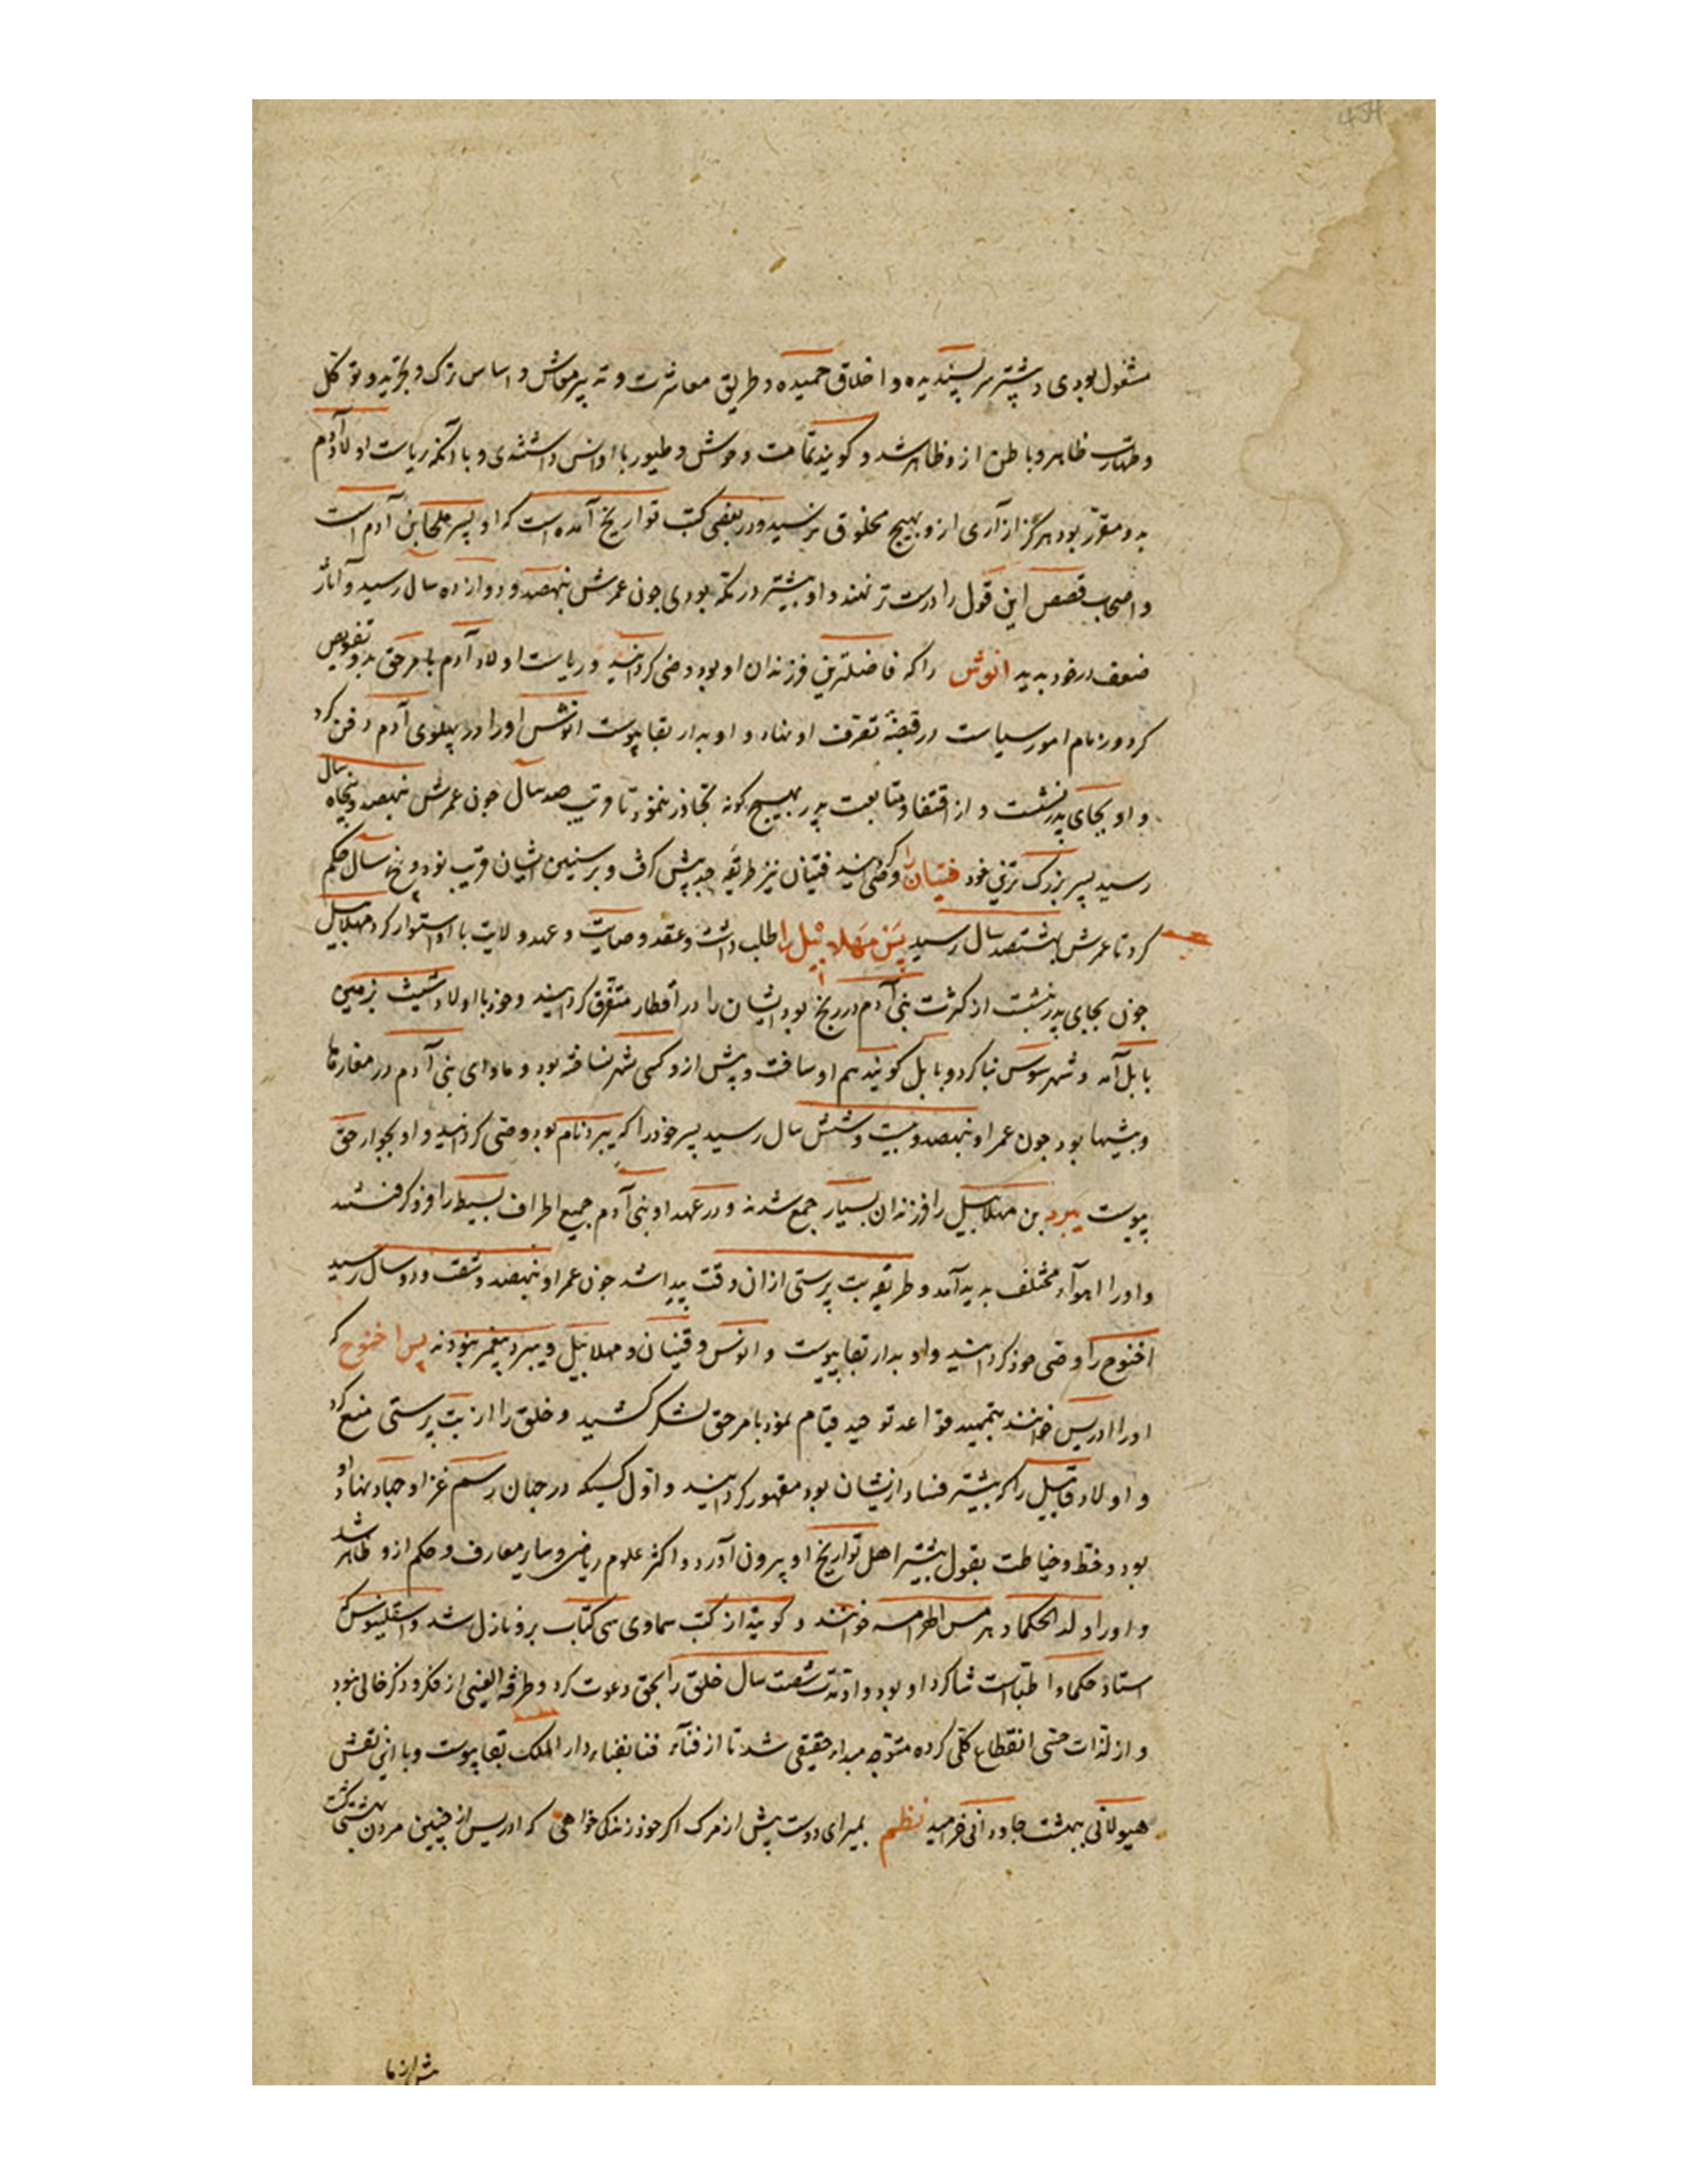 مشغول بودی و بیشتر سیر پسندیده و اخلاق حمیده و طریق معاشرت و تدبیر معاش و اساس ترک و تجرید و توکل
و طهارت ظاهر و باطن ازو ظاهر شد و کویند تمامت وحوش و طیور با او انس داشتندی و با آنکه ریاست اولاد آدم
بدو مقرر بود هرگز آزاری ازو بهیچ مخلوق نرسید و در بعضی کتب تواریخ آمده است که او پسر صلحا بن آدم است
و اصحاب قصص این قول را درست تر نهند و او بیشتر در مکه بودی جون عمرش بنهصد و دوازده سال رسید و آثار
ضعف در خود بدید انوش را که فاضلترین فرزندان او بود وصی کردانید و ریاست اولاد آدم بامر حق بدو تفویض
کرد و زمام امور سیاست در قبضهٔ تصرف او نهاد و او بدار بقا پیوست انوش او را در پهلوی آدم دفن کرد
و او بجای پدر بنشست و از اقتفا و متابعت پدر بهیچ کونه تجاذر ننمود تا قریب صد سال جون عمرش بنهصد و پنجاه سال
رسید پسر بزرگ ترین خود قینان را وصی کردانید قینان نیز طریقه جد پیش کرفت و برسنین ایشان قریب نود و پنج سال حکم
کرد تا عمرش بهشتصد سال رسید پس مهلائیل را طلب داشت و عقد وصایت و عهد ولایت با او استوار کرد مهلائیل
جون بجای پدر بنشست از کثرت بنی آدم در رنج بود ایشان را در اقطار متفرق کردانید و خود با اولاد شیث بزمین
بابل آمد و شهر سوس بنا کرد و بابل کویند هم او ساخت و پیش ازو کسی شهر نساخته بود و ماوای بنی آدم در مغارها
و بیشها بود جون عمر او بنهصد و بیست و شش سال رسید پسر خود را که یبرد نام بود وصی کردانید و او بجوار حق
پیوست یبرد بن مهلائیل را فرزندان بسیار جمع شدند و در عهد او بنی آدم جمیع اطراف بسیط را فرو کرفتند
و او را اهوآء مختلف بدید آمد و طریقه بت پرستی از ان وقت پیدا شد جون عمر او بنهصد و شصت و دو سال رسید
اخنوخ را وصی خود کردانید و او بدار بقا پیوست و انوش و قینان و مهلائیل و یبرد پیغمبر نبودند پس اخنوخ که
او را ادریس خوانند بتمهید قواعد توحید قیام نمود بامر حق لشکر کشید و خلق را از بت پرستی منع کرد
و اولاد قابیل را که بیشتر فساد ازیشان بود مقهور کردانید و اول کسیکه در جهان رسم غزا و جهاد نهاد او
بود و خط و خیاطت بقول بیشتر اهل تواریخ او بیرون آورد و اکثر علوم ریاضی و سایر معارف و حکم ازو ظاهر شد
و او را والد الحکما و هرمس الهرامسه خوانند و کویند از کتب سماوی سی کتاب برو نازل شد و اسقلینوس که
استاذ حکما و اطباست شاکرد او بود و او مدت شصت سال خلق را بحق دعوت کرد و طرفة العینی از فکر و ذکر خالی نبود
و از لذات حسی انقطاع کلی کرده متوجه مبداء حقیقی شد تا از فنآء فنا بفناء دار الملک بقا پیوست و با این نقش
هیولانی ببهشت جاودانی خرامید نظم بمیر ای دوست پیش از مرک اکر خود زندکی خواهی که ادریس از چنین مردن بهشتی کشت
پیش از ما